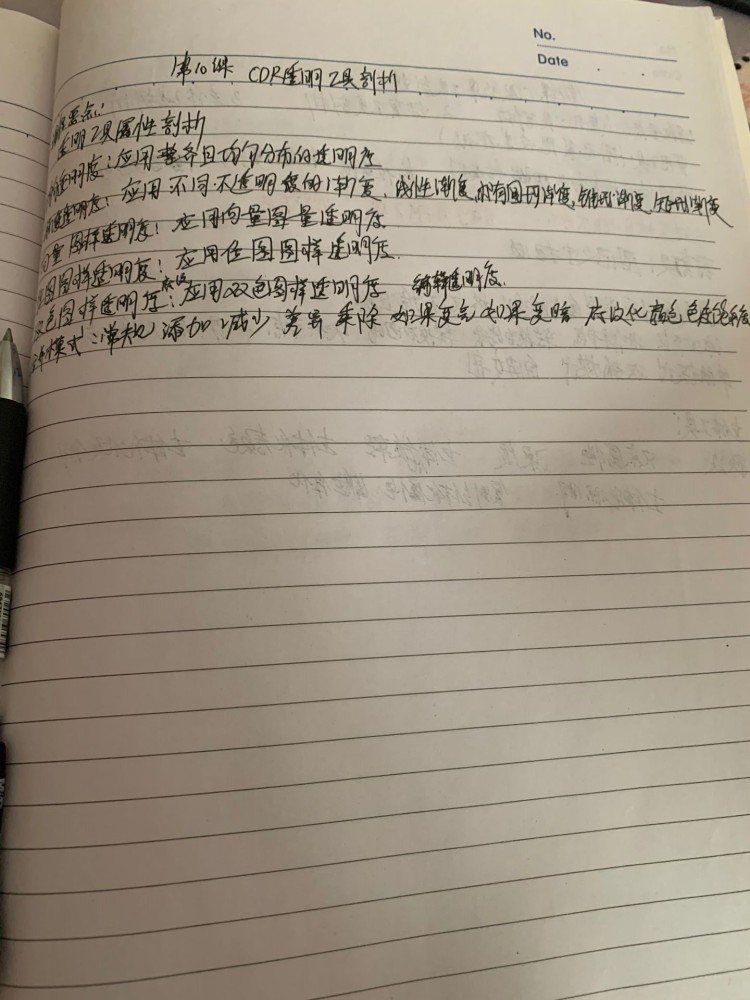 No.
Date
第10课 CDR透明工具剖析
要点:
透明工具属性剖析
透明度:应用整齐且均匀分布的透明度
透明度:应用不同不透明度的渐变,线性渐变,椭圆形渐变,锥形渐变,矩形渐变
向量图样透明度:应用向量图量透明度
位图图样透明度:应用位图图样透明度.
双色图样透明度:应用双色图样透明度 编辑透明度.
模式:常规 添加 减少 差异 乘除 如果更亮 如果更暗 颜色